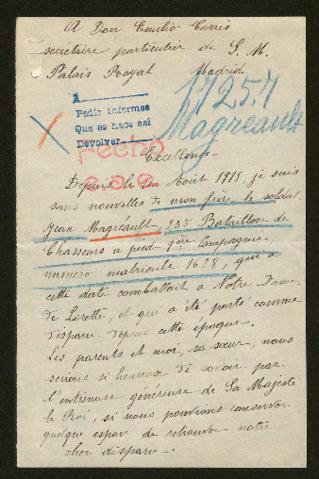 A Don Emilio Torrés
secrétaire particulier de S. M.
Palais Royal Madrid
1
Pedir informes
Que se hace así
Devolver
17257
Magréault
Fecho
Excellence
Depuis le 1er Août 1915, je suis
sans nouvelles de mon frère le soldat
Jean Magréault, 20e Bataillon de
Chasseurs à pied - 7ème Compagnie
numéro matricule 1628, qui à
cette date combattait à Notre Dame
de Lorette, et qui a été porté comme
disparu depuis cette époque.
Les parents et moi, sa sœur, nous
serions si heureux de savoir par
l'entremise généreuse de Sa Majesté
le Roi, si nous pouvions conserver
quelque espoir de retrouver notre
cher disparu -